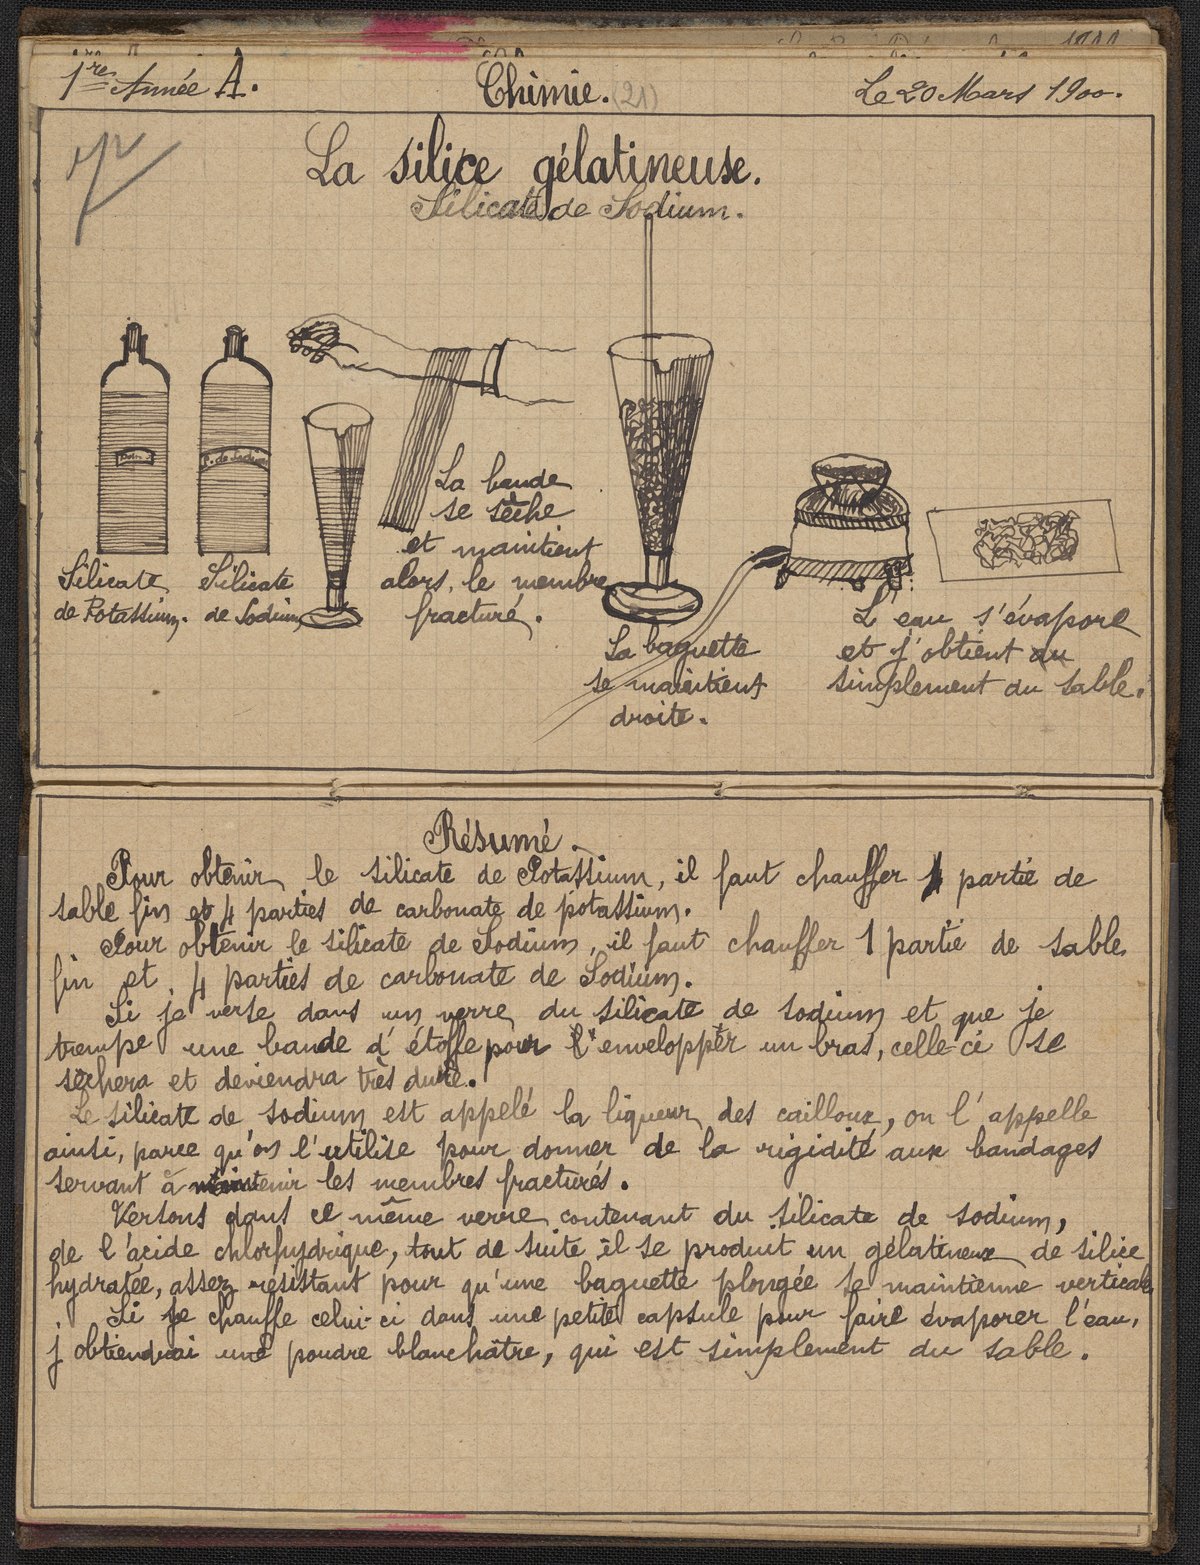 1re Année A.
Chimie. (21)
Le 20 Mars 1900.
La silice gélatineuse.
Silicate de Sodium.
S. de Sodium
Silicate
de Potassium.
Silicate
de Sodium
La bande
se sèche
et maintient
alors, le membre
fracturé.
La baguette
se maintient
droite.
L'eau s'évapore
et j'obtient au
simplement du sable.
Résumé.
Pour obtenir le silicate de Potassium, il faut chauffer 1 partie de
sable fin et 4 parties de carbonate de potassium.
Pour obtenir le silicate de Sodium, il faut chauffer 1 partie de sable
fin et 4 parties de carbonate de Sodium.
Si je verse dans un verre du silicate de sodium et que je
trempe une bande d'étoffe pour l'envelopper un bras, celle-ci se
sèchera et deviendra très dure.
Le silicate de sodium est appelé la liqueur des cailloux, on l'appelle
ainsi, parce qu'on l'utilise pour donner de la rigidité aux bandages
servant à maintenir les membres fracturés.
Versons dans ce même verre contenant du silicate de sodium,
de l'acide chlorhydrique, tout de suite il se produit un gélatineux de silice
hydratée, assez résistant pour qu'une baguette plongée se maintienne verticale
Si je chauffe celui-ci dans une petite capsule pour faire évaporer l'eau,
j'obtiendrai une poudre blanchâtre, qui est simplement du sable.